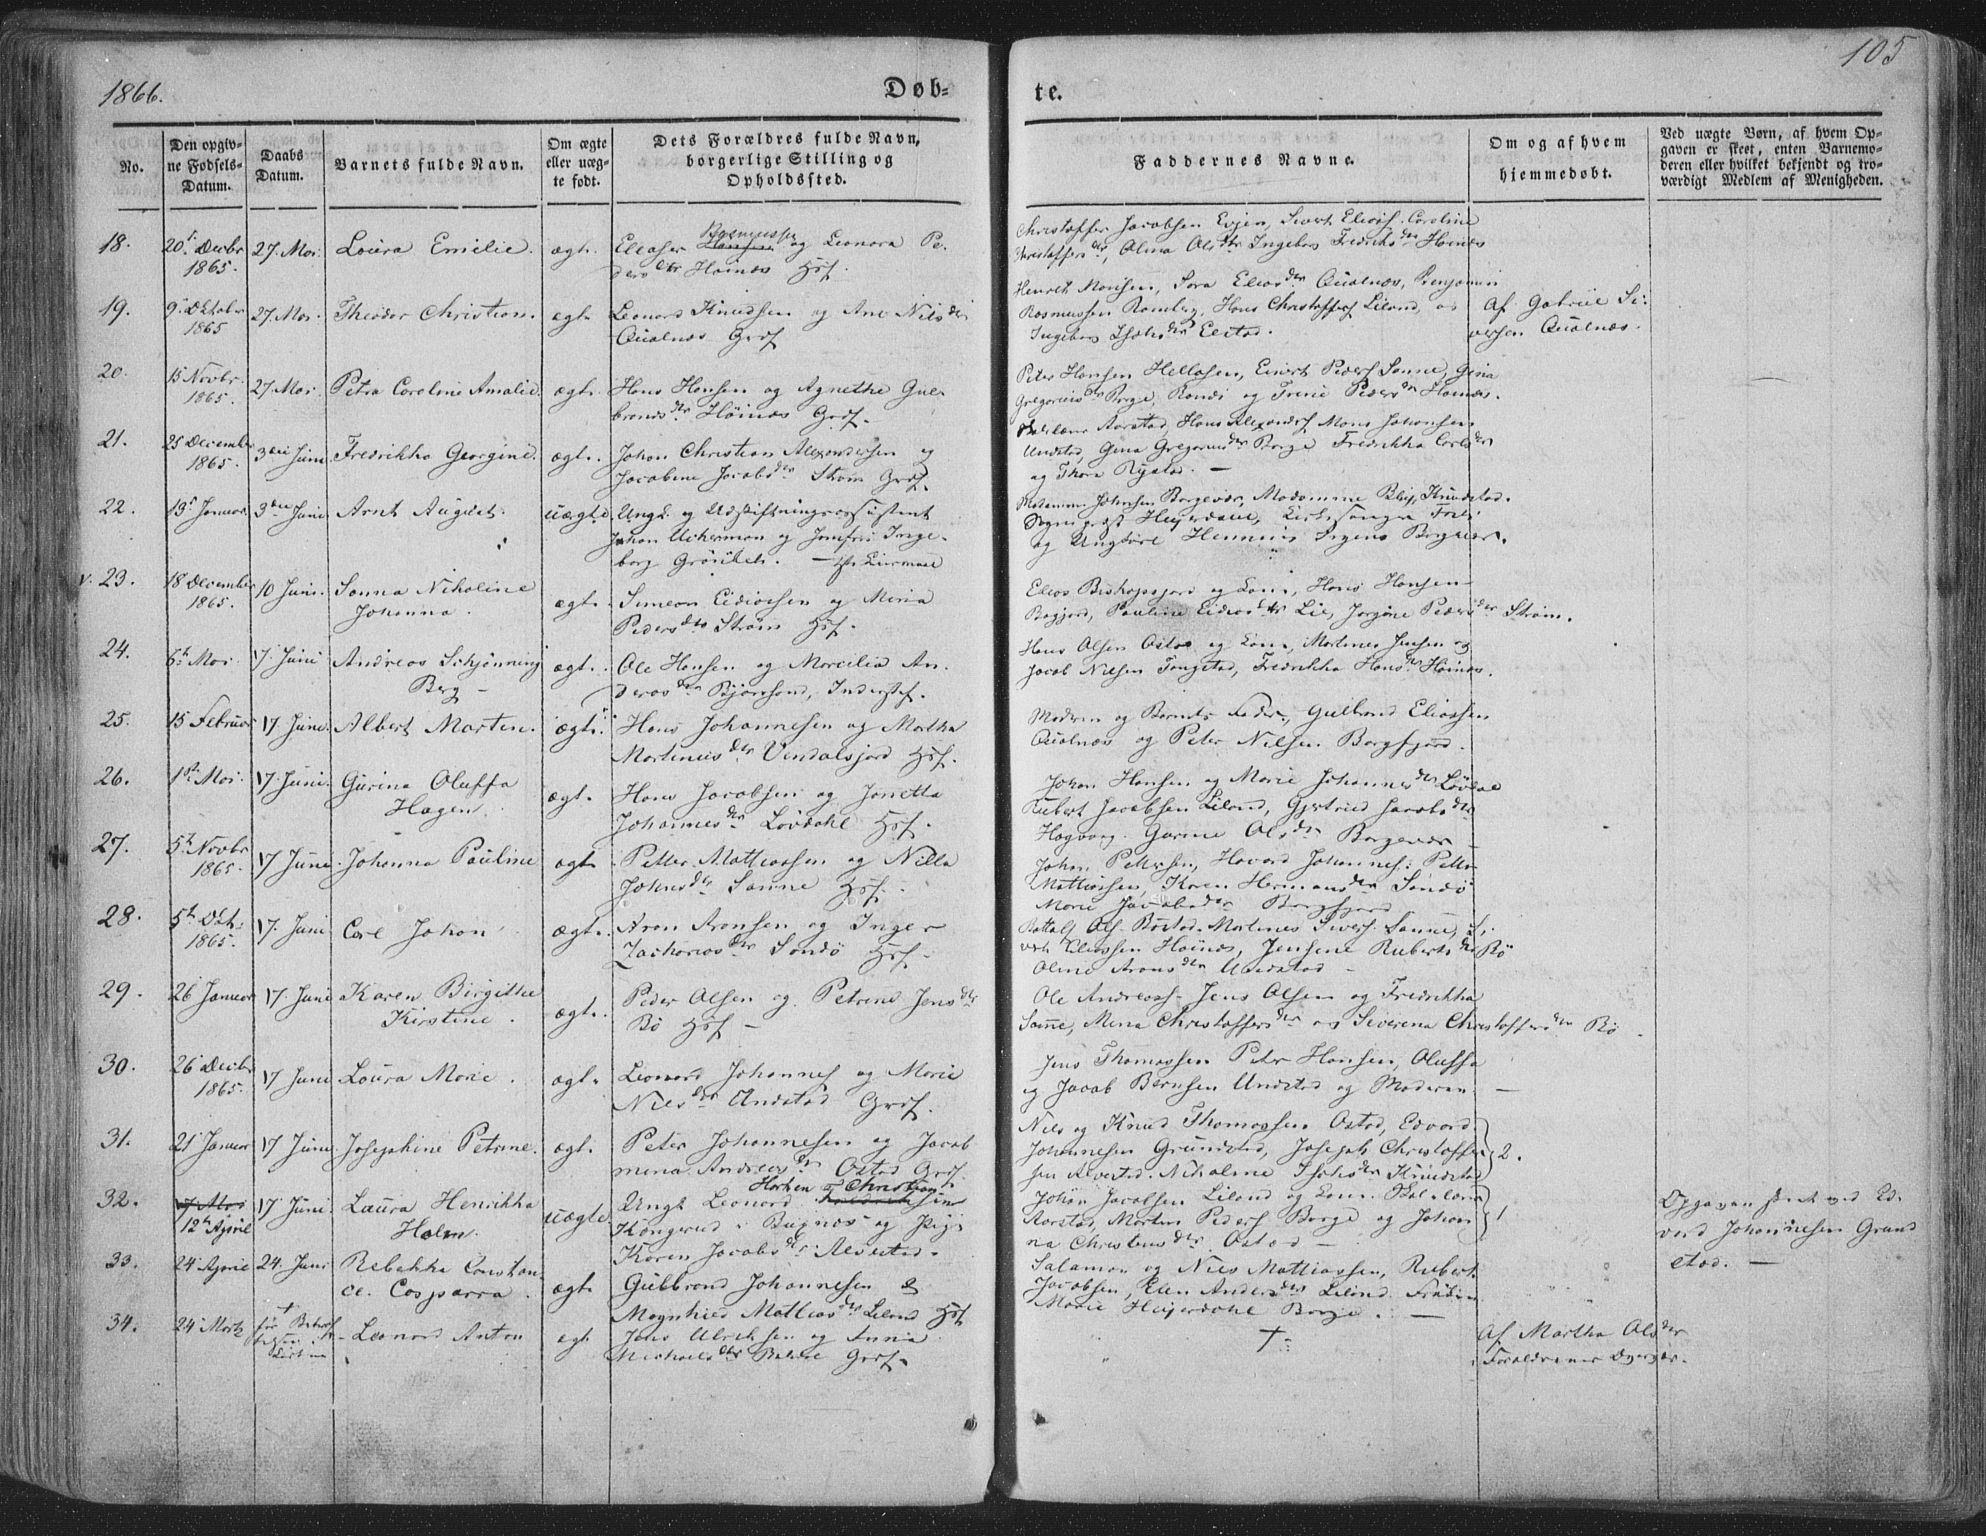 1866.
Døb-
te.
105
No.
Den opgiv-
ne Fødsels-
Datum.
Daabs
Datum.
Barnets fulde Navn.
Om ægte
eller uæg-
te født.
Dets Forældres fulde Navn,
borgerlige Stilling og
Opholdssted.
Faddernes Navne.
Om og af hvem
hjemmedøbt.
Ved uægte Børn, af hvem Op-
gaven er skeet, enten Barnemo-
deren eller hvilket bekjendt og tro-
værdigt Medlem af Menigheden.
18. 20de Decbr 1865. 27. Mai. Laura Emilie. ægt.
Eleaser Rasmussen og Leonora Pe-
dersdtr Hoinæs Hsf.
Christoffer Jacobsen Evjen, Sivert Eliass. Caroline
Christoffersdtr, Olina Olsdtr Ingeborg Fredriksdtr Hoinæs
19. 9 Oktober 1865 27. Mai. Theodor Christian. ægt.
Leonard Knudsen og Ane Nilsdtr
Qualnæs Grdf
Henrik Monsen, Sara Eliasdtr Qualnæs, Benjamin
Rasmussen Ramberg, Hans Christoffers. Liland, og
Ingebor Isaksdtr Elstad.
Af Gabriel Si-
versen Qualnæs.
20. 15 Novbr. 1865. 27 Mai. Petra Caroline Amalie. ægt.
Hans Hansen og Agnethe Gul-
brandsdtr Höinæs Grdf.
Peter Hansen Hellosen, Einert Peders. Sanne, Gina
Gregoriusdtr Borge, Randi og Trine Pedersdtr Hoinæs.
21. 25 December 1865. 3die Juni Fredrikka Georgine. ægt.
Johan Christian Alexandersen og
Jacobine Jacobsdtr Strøm Grdf.
Aarstad, Hans Alexanders. Mons Johansen
Undstad, Gina Gregoriusdtr Borge Fredrikka Carlsdtr
og Thora Rystad. —
22. 19 Januar. 3die Juni Arnt August. uægte.
Ungk. og Udskiftningsassistent
Johan Ackerman og Jomfru Inge-
borg Grönbeck.
Madamme Johnsen Borgevær, Madamme Knudstad.
Sognepræst Heyerdahl, Kirkesanger
og Ungkarl Henning Irgens Borgvær.
v. 23. 18 December 1865. 10 Juni. Sanna Nikoline
Johanna. ægt.
Simeon Eidissen og Maria
Pedersdtr Strøm Hsf.
Elias Bishopsjord og Kone, Hans Hansen
Bogjord, Pauline Lie, Jorgine Pedersdtr Strøm.
24. 6te Mai. 17 Juni Andreas Schjönning
Berg — ægt.
Ole Hansen og Marcilia An-
dreasdtr Bjørnsand, Inderstsf.
Hans Olsen Ostad og Kone, Martines Jensen og
Jacob Nilsen Tangstad, Fredrikka Hansdtr Höinæs.
25. 15 Februar 17 Juni. Albert Martin. ægt.
Hans Johannesen og Martha
Martinusdtr Vendalsjord Hsf.
Moderen og Barnets Fader, Gulbrand Eliassen
Qualnæs og Peter Nilsen Borgfjord.
26. 1ste Mai. 17 Juni. Gurina Oluffa
Hagen. ægt.
Hans Jacobsen og Janetta
Johannesdtr Lövdahl Hsf.
Johan Hansen og Marie Johannesdtr Lövdal
Rubert Jacobsen Liland, Gjertrud Jacobsdtr
Hagvaag. Gurine Olsdtr Borgevær —
27. 5te Novbr 1865. 17 Juni. Johanna Pauline ægt.
Petter Mattiassen og Nilla
Johnsdtr Sanne Hsf.
Johan Pettersen, Havard Johannes. Petter
Mattiassen, Karen Hermansdtr Sandö
Marie Jacobsdtr Borgfjord
28. 5te Okt. 1865. 17. Juni Carl Johan ægt.
Aron Aronsen og Inger
Zachariasdtr Sandö Hsf.
Ols. Bostad. Martines Sivers. Sanne, Si-
vert Eliassen Hoinæs, Jensine Rubertsdtr Bö
Oline Aronsdtr Undstad —
29. 26 Januar 17. Juni Karen Birgitte
Kirstine. ægt.
Peder Olsen og Petrine Jensdtr
Bö Hsf —
Ole Andreass. Jens Olsen og Fredrikka
Sanne, Mina Christoffersdtr og Siverena Christoffersdtr Bö.
30. 26 Decbr 1865. 17 Juni Laura Marie. ægt.
Leonard Johannes. og Marie
Nilsdtr Undstad Grdf.
Jens Thomassen Peter Hansen, Oluffa
og Jacob Berntsen Undstad og Moderen. —
31. 21 Januar 17 Juni Josephine Petrine. ægt.
Peter Johannesen og Jacob
mina Andreasdtr Ostad Grdf
Nils og Knud Thomassen Ostad, Edvard
Johannesen Grundstad, Joseph Christoffer
sen Alvestad. Nikoline Isaksdtr Knudstad } 2.
32. 17 Mai 12te April 17 Juni Laura Henrikka
Holm. uægte
Ungk. Leonard Harken Christian
Kongerud i Bugnæs og Pige
Karen Jacobsdtr Alvestad.
Johan Jacobsen Liland og Kone.
Aarstad, Morten Peders. Borge og Johan
na Christensdtr Ostad — } 1
Opgaven skeet ved Ed-
vard Johannesen Grund
stad. —
33. 24 April 24. Juni Rebekka Constan-
ce. Casparra. ægt.
Gulbrand Johannesen &
Magnhild Mattiasdtr Liland Hsf
Salamon og Nils Mattiassen, Rubert
Jacobsen, Elen Andersdtr Liland. Frøken
Marie Heyerdahl Borge. —
34. 24 Marts Leonard Anton ægt.
Jens Ulriksen og Anna
Michaelsdtr Grdf.
†
Af Martha Olsdtr